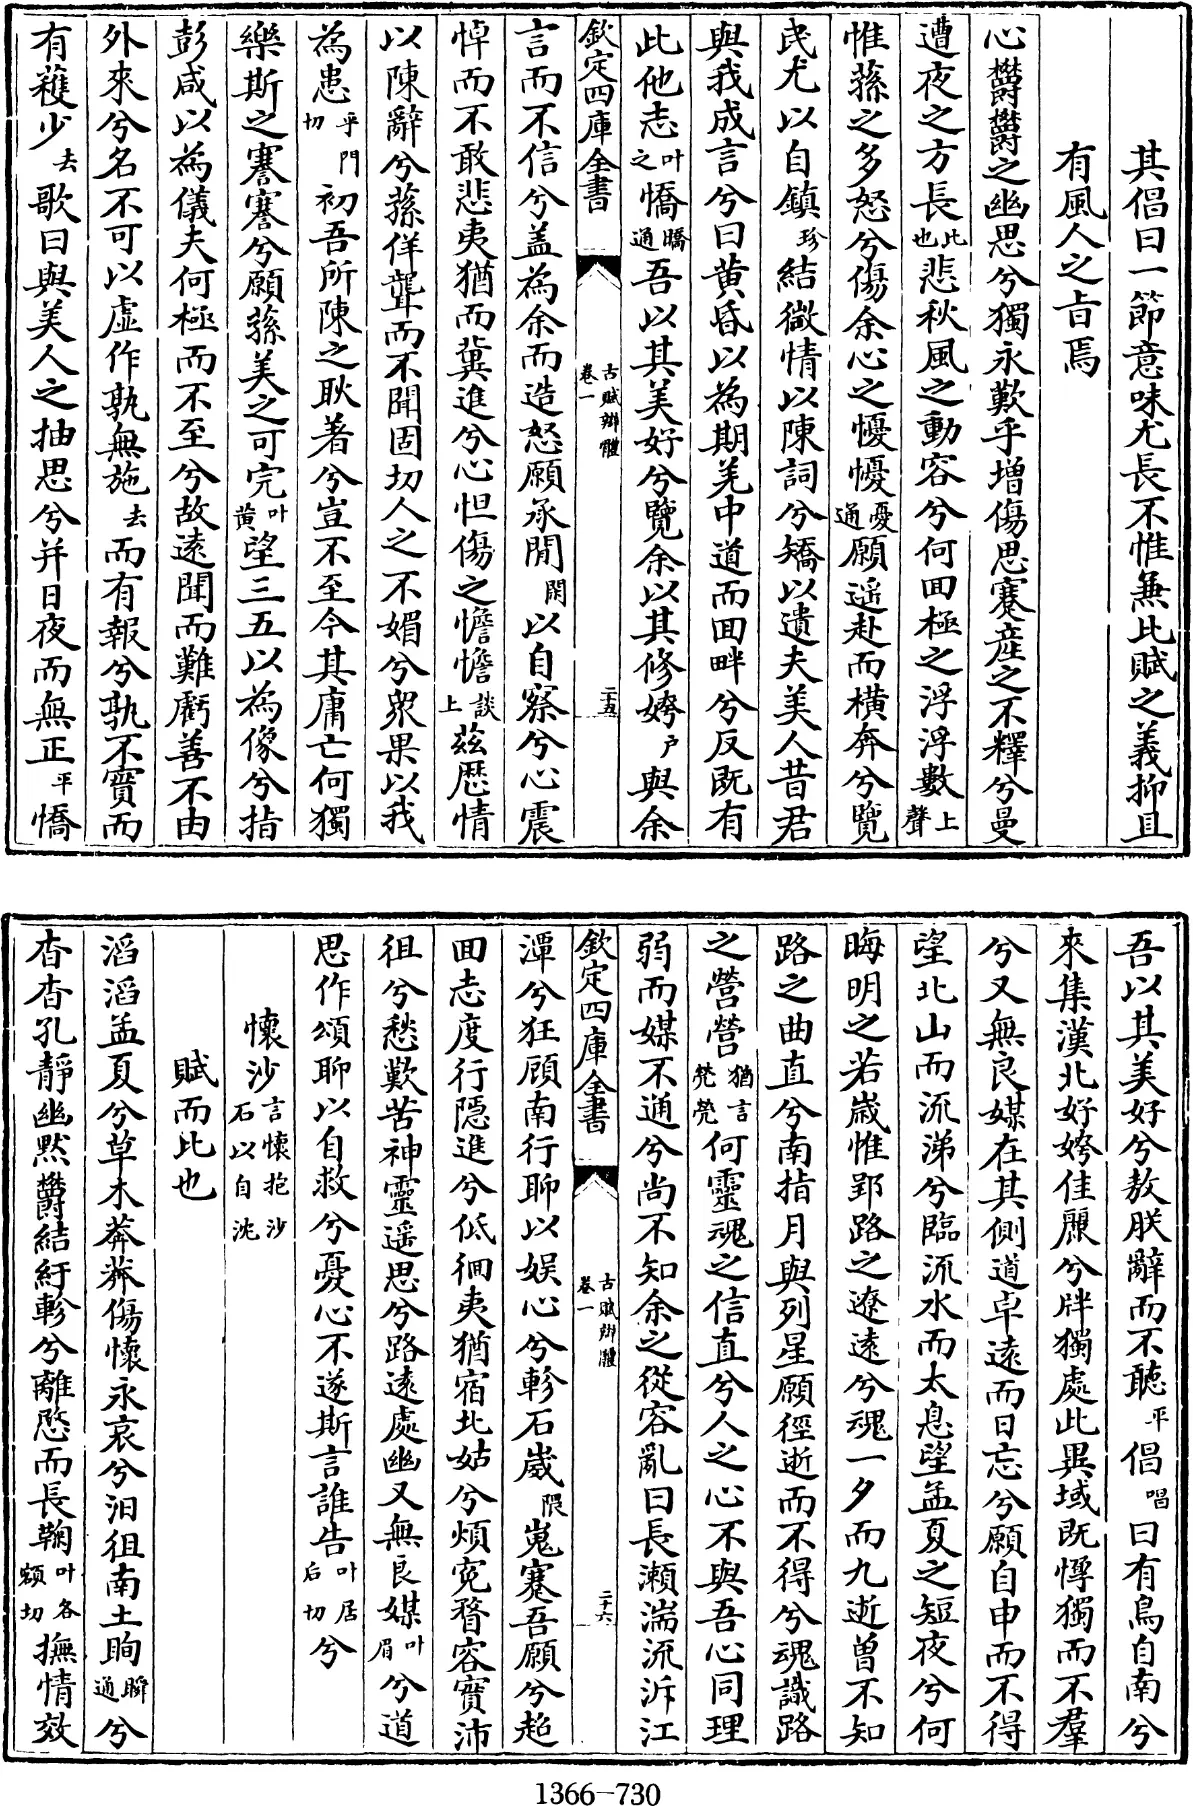 其倡曰一節意味尤長不惟兼此賦之義抑且
有風人之㫖焉
心欎欎之幽思兮獨永歎乎增傷思蹇産之不釋兮曼
遭夜之方長此也悲秋風之動容兮何回極之浮浮數上聲
惟蓀之多怒兮傷余心之懮懮憂通願遥赴而橫奔兮覽
民尤以自鎮珍結㣲情以陳詞兮矯以遺夫美人昔君
與我成言兮曰黄昏以為期羌中道而回畔兮反既有
此他志叶之憍驕通吾以其美好兮覽余以其修姱户與余
欽定四庫全書
古賦辯體
卷一
二十五
言而不信兮盖為余而造怒願承閒閑以自察兮心震
悼而不敢悲夷猶而兾進兮心怛傷之憺憺談上兹歴情
以陳辭兮蓀佯聾而不聞固切人之不媚兮衆果以我
為患乎門切初吾所陳之耿著兮豈不至今其庸亡何獨
樂斯之謇謇兮願蓀美之可完叶黄望三五以為像兮指
彭咸以為儀夫何極而不至兮故逺聞而難虧善不由
外來兮名不可以虚作孰無施去而有報兮孰不實而
有穫少去歌曰與美人之抽思兮并日夜而無正平憍
吾以其美好兮敖朕辭而不聽平倡唱曰有鳥自南兮
來集漢北好姱佳麗兮牉獨處此異域既惸獨而不羣
兮又無良媒在其側道卓逺而日忘兮願自申而不得
望北山而流涕兮臨流水而太息望孟夏之短夜兮何
晦明之若嵗惟郢路之遼逺兮魂一夕而九逝曽不知
路之曲直兮南指月與列星願徑逝而不得兮魂識路
之營營猶言煢煢何靈魂之信直兮人之心不與吾心同理
弱而媒不通兮尚不知余之從容亂曰長瀬湍流泝江
欽定四庫全書
古賦辯體
卷一
二十六
潭兮狂顧南行聊以娱心兮軫石崴隈嵬蹇吾願兮超
回志度行隠進兮低佪夷猶宿北姑兮煩寃瞀容實沛
徂兮愁歎苦神靈遥思兮路逺處幽又無良媒叶眉兮道
思作頌聊以自救兮憂心不遂斯言誰告叶居后切兮
懷沙言懷抱沙石以自沈
賦而比也
滔滔孟夏兮草木莽莽傷懷永哀兮汨徂南土眴瞬通兮
杳杳孔靜幽黙欝結紆軫兮離愍而長鞠叶各額切撫情效
1366—730